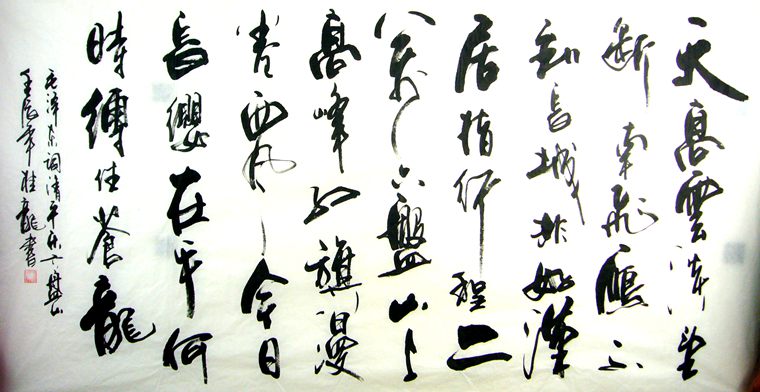 天高雲淡望
断南飛鴈不
到長城非好漢
屈指行程二
萬六盤山上
高峰红旗漫
卷西風今日
長纓在手何
時縛住蒼龍
毛泽东词清平乐六盘山
壬辰年桂龍書